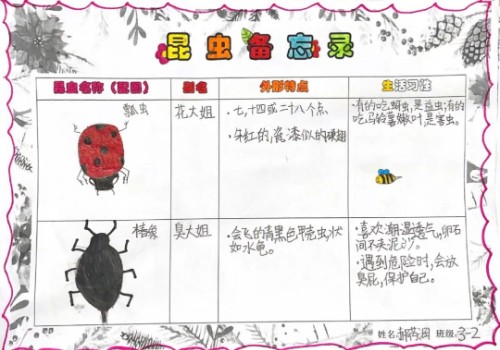 昆虫备忘录
昆虫名称（配图） 别名 外形特点 生活习性
瓢虫
花大姐
·七,十四或二十八个点
·朱红的,瓷漆似的硬翅
·有的吃蚜虫,是益虫;有的
吃马铃薯嫩叶,是害虫。
椿象
臭大姐
·会飞的青黑色甲壳虫,状
如水龟。
·喜欢潮湿透气,卵石
间不夹泥沙。
·遇到危险时,会放
臭屁,保护自己。
姓名: 班级:3-2